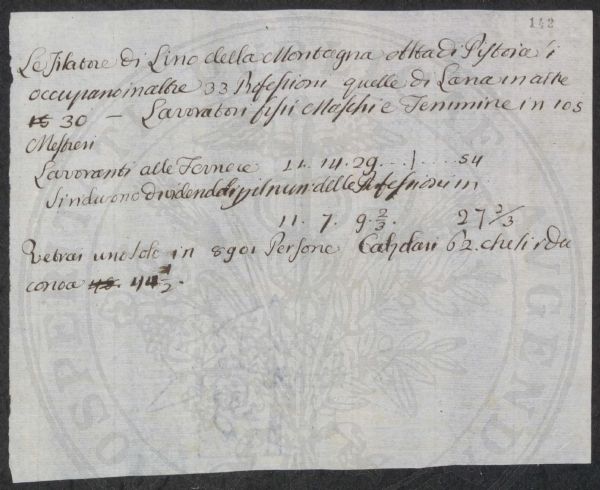 142
Le Filatore di Lino della Montagna Alta di Pistoia si
occupano in altre 33 Professioni quelle di Lana in altre
30 — Lavoratori fissi Maschi e Femmine in 105
Mestieri
Lavoranti alle Fornace 11. 14. 29 .. 1 .... 54
si riducono dividendo il num: delle Professioni in
11. 7. 9. 2/3. 27 2/3
Vetrai uno solo in 8901 Persone 62. che si ridu
cono a 44 1/2.